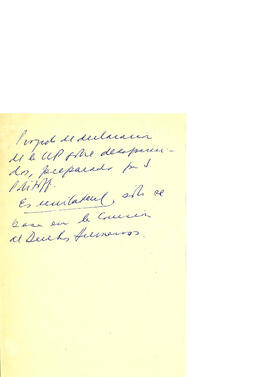 Proyecto de declaración
de la UP sobre desapareci-
dos, preparado por S.
Politoff.
Es unilateral, sólo se
basa en la Comisión
de Derechos Humanos.